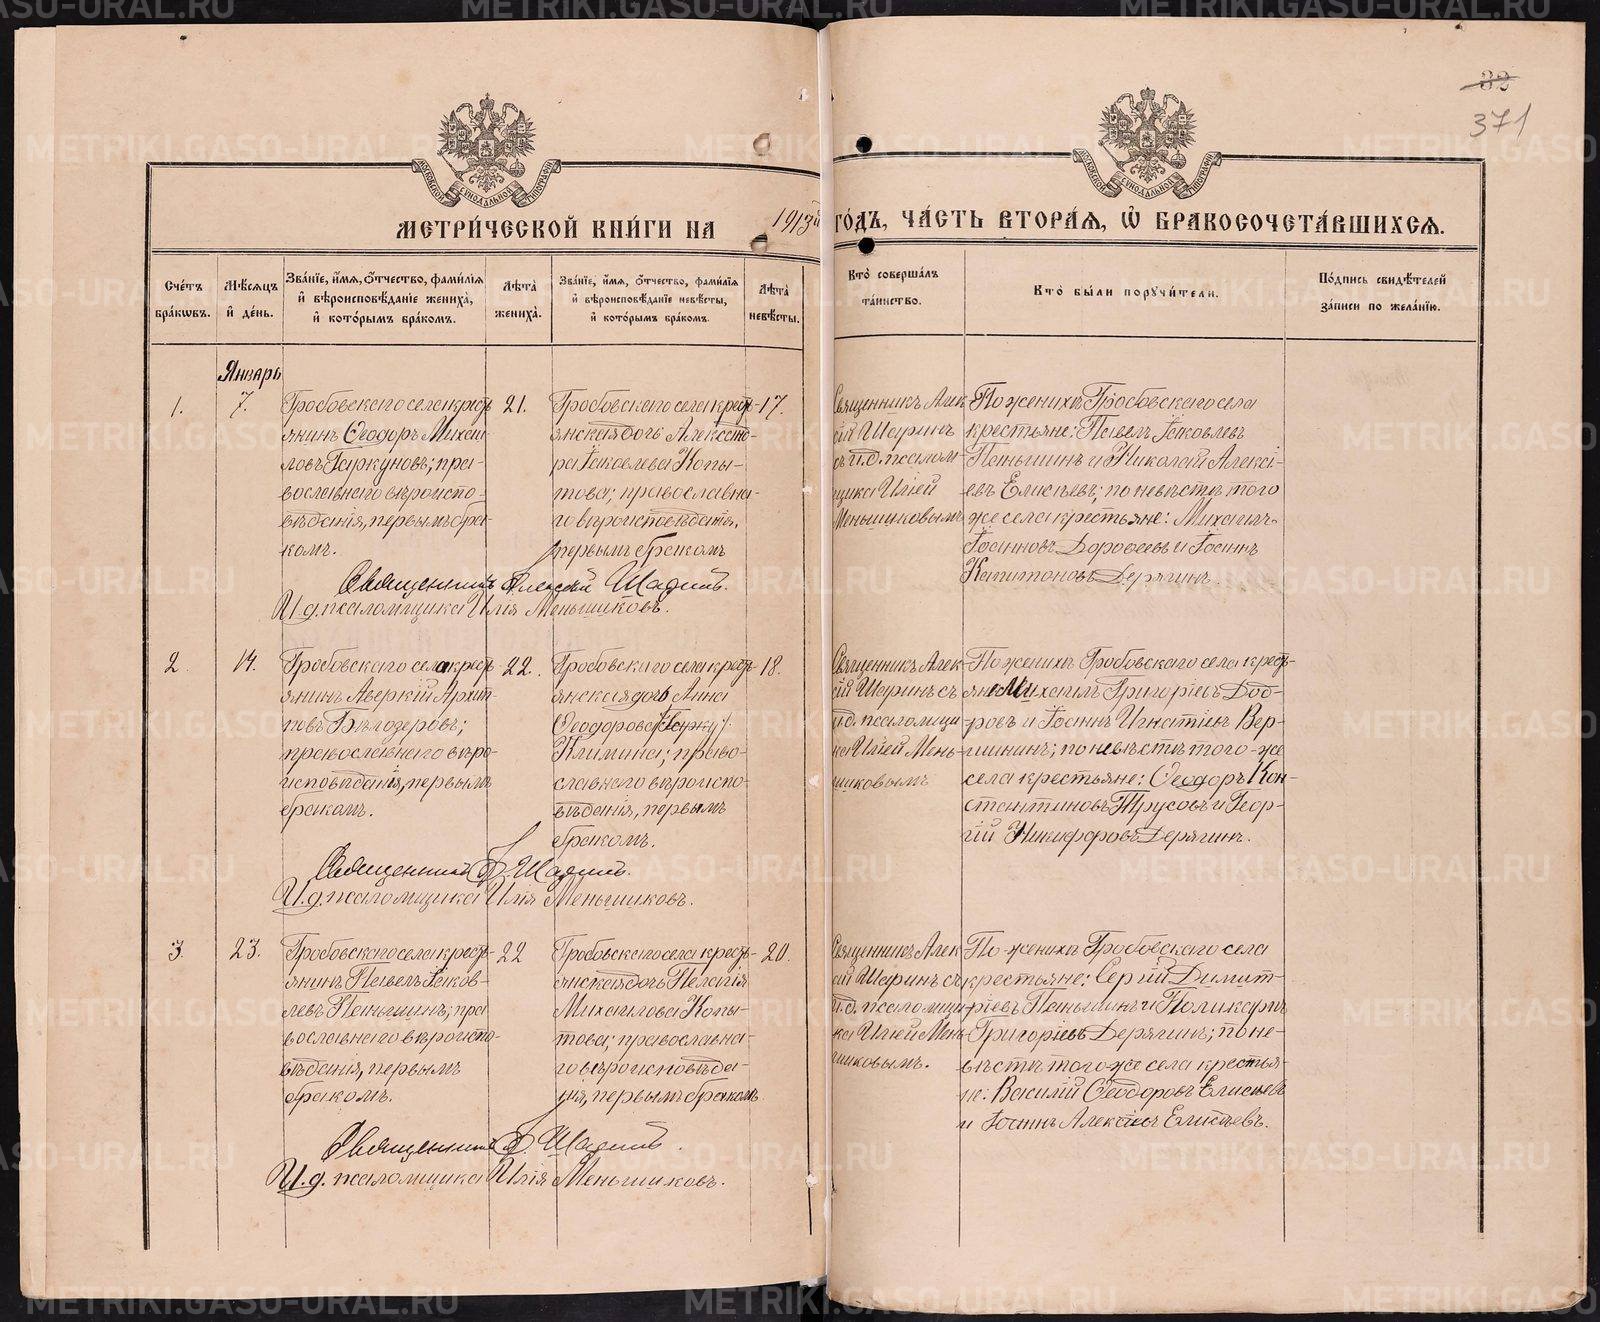 32
371
МЕТРИ́ЧЕСКОЙ КНИ́ГИ НА 1913й ГО́ДЪ, ЧА́СТЬ ВТОРА́Я, Ѡ БРАКОСОЧЕТА́ВШИХСЯ.
Сче́тъ бра́кωвъ.
Мѣ́сяцъ и҆ де́нь.
Зва́нїе, и҆́мя, ѻ҆́тчество, фами́лїя и҆ вѣроисповѣ́данїе жениха̀, и҆ кото́рымъ бра́комъ.
Лѣ́та жениха̀.
Зва́нїе, и҆́мя, ѻ҆́тчество, фами́лїя и҆ вѣроисповѣ́данїе невѣ́сты, и҆ кото́рымъ бра́комъ.
Лѣ́та невѣ́сты.
Кто̀ соверша́лъ та́инство.
Кто̀ бы́ли поручи́тели.
По́дпись свидѣ́телей за́писи по жела́нїю.
Январь
1.
7.
Гробовскаго села крестъ-
янинъ Ѳеодоръ Михаи-
ловъ Таркуновъ; пра-
вославнаго вѣроиспо-
вѣданія, первымъ бра-
комъ.
21.
Гробовскаго села кресть-
янская дочь Алексан-
дра Іаковлева Копы-
това; православна-
го вѣроисповѣданія,
первымъ бракомъ
17.
Священникъ Алек-
сій Шаринъ
съ и.д. псалом-
щика Иліей
Меньшиковымъ
По женихѣ Гробовскаго села
крестьяне: Павелъ Іаковлевъ
Паньшинъ и Николай Алексі-
евъ Елисѣевъ; по невѣстѣ того
же села крестьяне: Михаилъ
Іоанновъ Дороѳеевъ и Іоаннъ
Капитоновъ Дерягинъ.
Священникъ Алексій Шаринъ.
И.д. псаломщика Илія Меньшиковъ.
2.
14.
Гробовскаго села кресть-
янинъ Аверкій Архип-
повъ Бѣлозеровъ;
православнаго вѣро-
исповѣданія, первымъ
бракомъ.
22.
Гробовскаго села кресть-
янская дочь Анна
Ѳеодорова
Климина; право-
славнаго вѣроиспо-
вѣданія, первымъ
бракомъ.
18.
Священникъ Алек-
сій Шаринъ съ
и.д. псаломщи-
ка Иліей Мень-
шиковымъ
По женихѣ Гробовскаго села кресть-
яне Михаилъ Григоріевъ Доб-
ровъ и Іоаннъ Игнатіевъ Вер-
шининъ; по невѣстѣ того-же
села крестьяне: Ѳеодоръ Кон-
стантиновъ Трусовъ и Геор-
гій Никифоровъ Дерягинъ.
Священникъ А. Шаринъ.
И.д. псаломщика Илія Меньшиковъ.
3.
23.
Гробовскаго села кресть-
янинъ Павелъ Іаков-
левъ Паньшинъ; пра-
вославнаго вѣроиспо-
вѣданія, первымъ
бракомъ.
22
Гробовскаго села кресть-
янская дочь Пелагія
Михаилова Копы-
това; православна-
го вѣроисповѣда-
нія, первымъ бракомъ
20.
Священникъ Алек-
сій Шаринъ съ
и.д. псаломщи-
ка Иліей Мень-
шиковымъ.
По женихѣ Гробовскаго села
крестьяне: Сергій Димит-
ріевъ Паньшинъ и Поликарпъ
Григоріевъ Дерягинъ; по не-
вѣстѣ того же села крестья-
не: Василій Ѳеодоровъ Елисѣевъ
и Іоаннъ Алексіевъ Елисѣевъ.
Священникъ А. Шаринъ.
И.д. псаломщика Илія Меньшиковъ.
METRIKI.GASO-URAL.RU